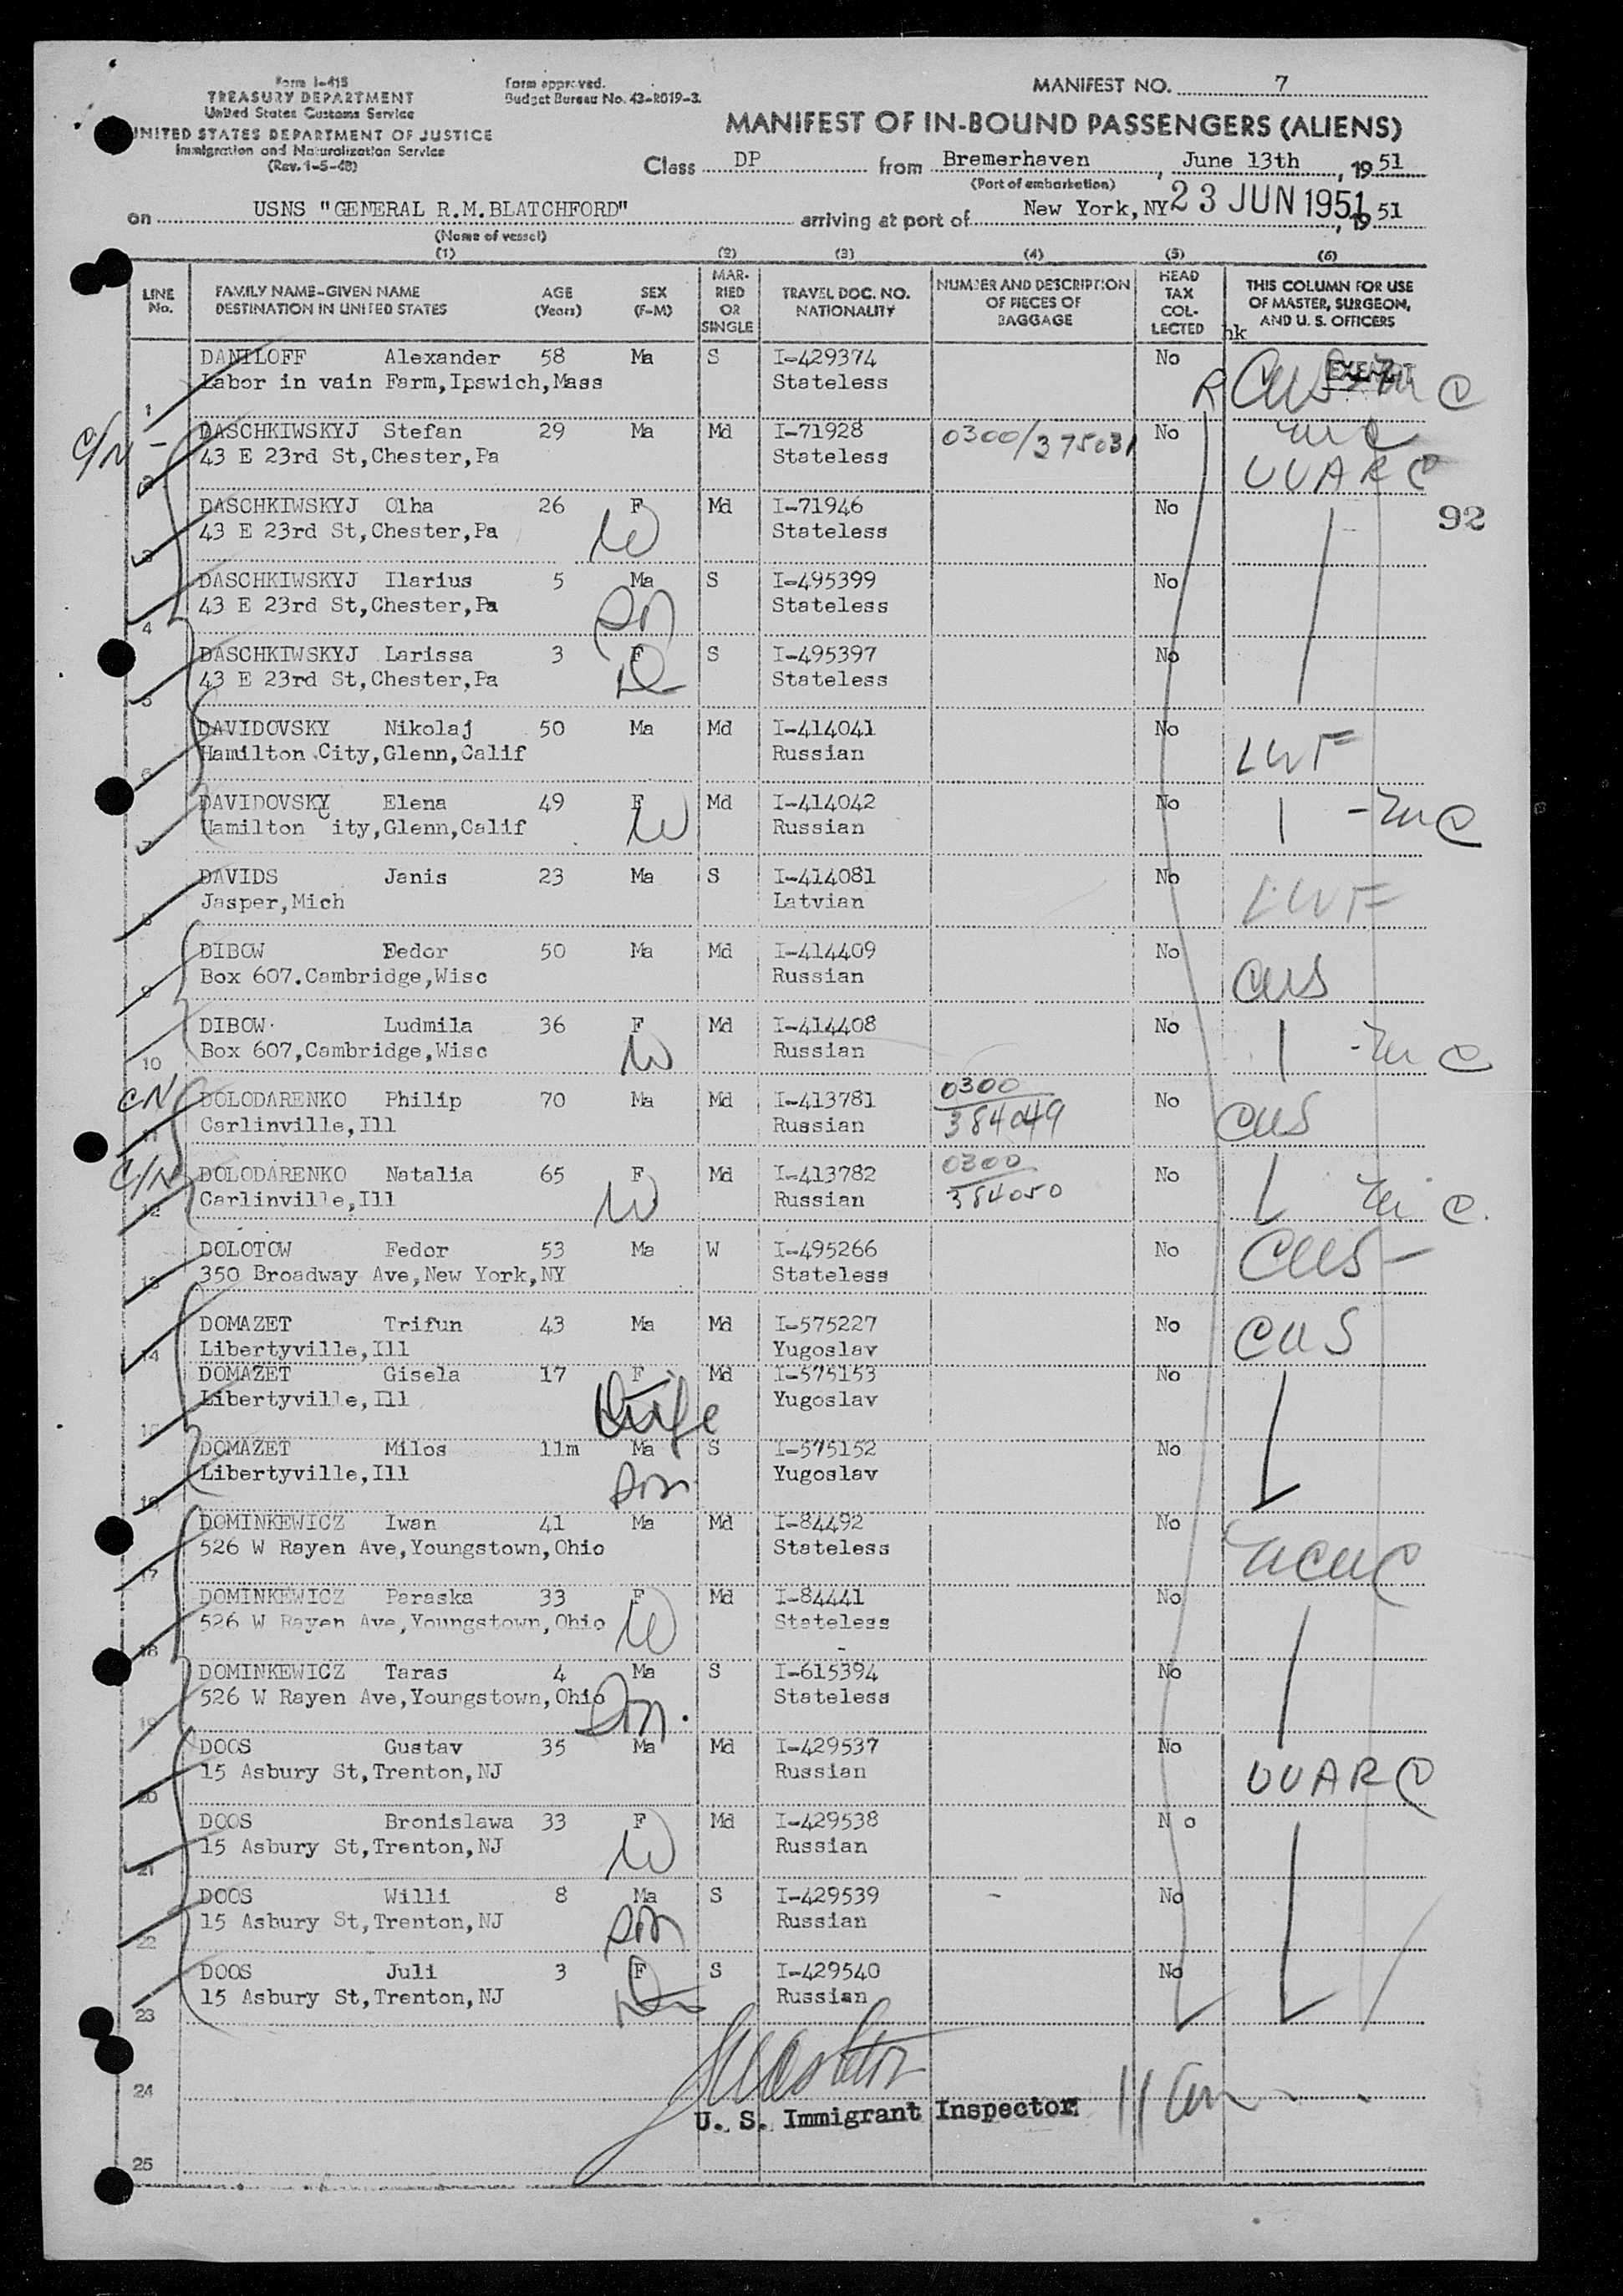 Form I-415
TREASURY DEPARTMENT
United States Customs Service
UNITED STATES DEPARTMENT OF JUSTICE
Immigration and Naturalization Service
(Rev. 1-5-48)
Form approved.
Budget Bureau No. 43-R019-3.
MANIFEST NO. 7
MANIFEST OF IN-BOUND PASSENGERS (ALIENS)
Class DP from Bremerhaven, June 13th, 1951
(Port of embarkation)
on USNS "GENERAL R.M.BLATCHFORD" arriving at port of New York, NY 23 JUN 1951, 1951
(Name of vessel)
(1) (2) (3) (4) (5) (6)
LINE No. FAMILY NAME-GIVEN NAME DESTINATION IN UNITED STATES AGE (Years) SEX (F-M) MARRIED OR SINGLE TRAVEL DOC. NO. NATIONALITY NUMBER AND DESCRIPTION OF PIECES OF BAGGAGE HEAD TAX COLLECTED THIS COLUMN FOR USE OF MASTER, SURGEON, AND U. S. OFFICERS
hk
DANILOFF Alexander 58 Ma S I-429374 No EXEMPT
1 Labor in vain Farm,Ipswich,Mass Stateless
C/N DASCHKIWSKYJ Stefan 29 Ma Md I-71928 0300/375031 No
2 43 E 23rd St,Chester,Pa Stateless UUARC
DASCHKIWSKYJ Olha 26 F Md I-71946 No
3 43 E 23rd St,Chester,Pa W Stateless
92
DASCHKIWSKYJ Ilarius 5 Ma S I-495399 No
4 43 E 23rd St,Chester,Pa Son Stateless
DASCHKIWSKYJ Larissa 3 F S I-495397 No
5 43 E 23rd St,Chester,Pa D Stateless
DAVIDOVSKY Nikolaj 50 Ma Md I-414041 No
6 Hamilton City,Glenn,Calif Russian LWF
DAVIDOVSKY Elena 49 F Md I-414042 No
7 Hamilton City,Glenn,Calif W Russian
DAVIDS Janis 23 Ma S I-414081 No
8 Jasper,Mich Latvian LWF
DIBOW Fedor 50 Ma Md I-414409 No
9 Box 607.Cambridge,Wisc Russian CWS
DIBOW Ludmila 36 F Md I-414408 No
10 Box 607,Cambridge,Wisc W Russian
CN DOLODARENKO Philip 70 Ma Md I-413781 0300 No
11 Carlinville,Ill Russian 384049 CWS
C/N DOLODARENKO Natalia 65 F Md I-413782 0300 No
12 Carlinville,Ill W Russian 384050
DOLOTOW Fedor 53 Ma W I-495266 No CWS
13 350 Broadway Ave,New York,NY Stateless
DOMAZET Trifun 43 Ma Md I-575227 No CWS
14 Libertyville,Ill Yugoslav
DOMAZET Gisela 17 F Md I-575153 No
15 Libertyville,Ill Wife Yugoslav
DOMAZET Milos 11m Ma S I-575152 No
16 Libertyville,Ill Son Yugoslav
DOMINKEWICZ Iwan 41 Ma Md I-84492 No
17 526 W Rayen Ave,Youngstown,Ohio Stateless NCWC
DOMINKEWICZ Paraska 33 F Md I-84441 No
18 526 W Rayen Ave,Youngstown,Ohio W Stateless
DOMINKEWICZ Taras 4 Ma S I-615394 No
19 526 W Rayen Ave,Youngstown,Ohio Son. Stateless
DOOS Gustav 35 Ma Md I-429537 No
20 15 Asbury St,Trenton,NJ Russian UUARC
DOOS Bronislawa 33 F Md I-429538 N o
21 15 Asbury St,Trenton,NJ W Russian
DOOS Willi 8 Ma S I-429539 - No
22 15 Asbury St,Trenton,NJ Son Russian
DOOS Juli 3 F S I-429540 No
23 15 Asbury St,Trenton,NJ D Russian
24
U. S. Immigrant Inspector
25